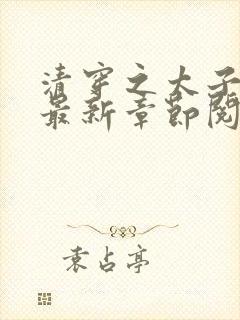 清穿之太子
最新章節閱
袁占亭